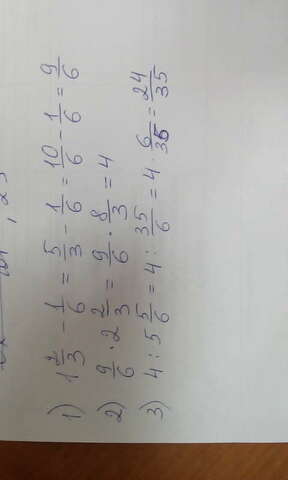 1) 1 2/3 - 1/6 = 5/3 - 1/6 = 10/6 - 1/6 = 9/6
2) 9/6 · 2 2/3 = 9/6 · 8/3 = 4
3) 4 : 5 5/6 = 4 : 35/6 = 4 · 6/35 = 24/35